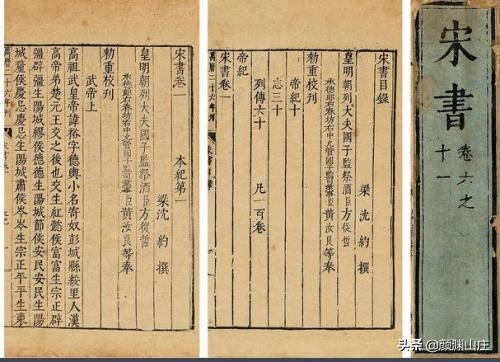 宋書
卷六之
十一
宋書目錄
梁沈約撰
皇明朝列大夫國子監祭酒臣方從哲
承德郎右春坊右中允管國子監司業事臣黃汝良等奉
勅重校刊
帝紀十
志三十
列傳六十
凡一百卷
宋書卷一
帝紀
萬曆二十六年刊
宋書卷一
本紀第一
梁沈約撰
皇明朝列大夫國子監祭酒臣方從哲
承德郎右春坊右中允管國子監司業事臣黃汝良等奉
勅重校刊
武帝上
高祖武皇帝諱裕字德輿小名寄奴彭城縣綏里人漢
高帝弟楚元王交之後也交生紅懿侯富富生宗正辟
彊辟彊生陽城繆侯德德生陽城節侯安民安民生陽
城釐侯慶忌慶忌生陽城肅侯岑岑生宗正平平生東
萬曆二十六年刊
头条 @颜渊山庄